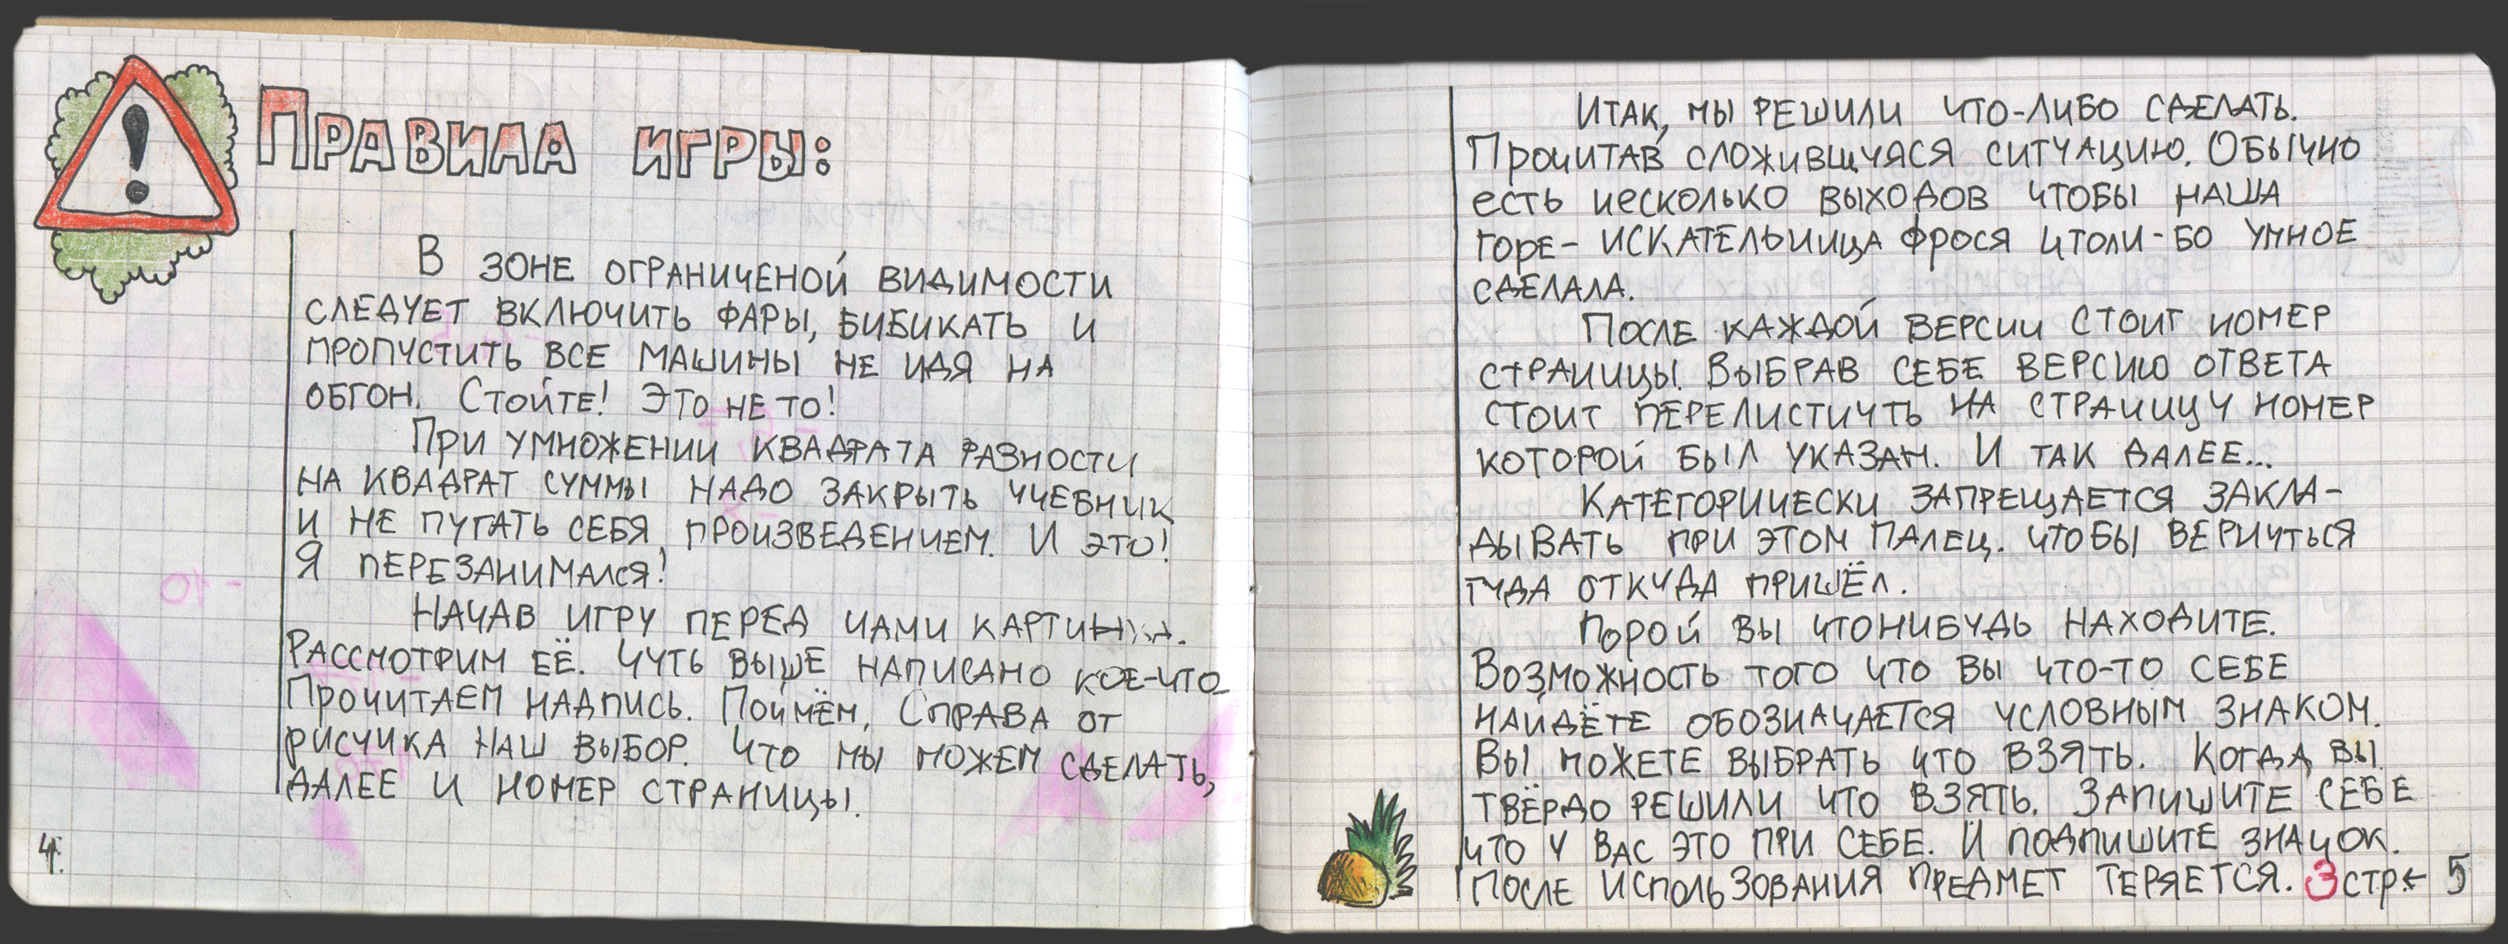 Правила игры:
В зоне ограниченой видимости
следует включить фары, бибикать и
пропустить все машины не идя на
обгон. Стойте! Это не то!
При умножении квадрата разности
на квадрат суммы надо закрыть учебник
и не пугать себя произведением. И это!
Я перезанимался!
Начав игру перед нами картинка.
Рассмотрим её. Чуть выше написано кое-что
Прочитаем надпись. Поймём, Справа от
рисунка наш выбор. Что мы можем сделать,
далее и номер страницы.
4.
Итак, мы решили что-либо сделать.
Прочитав сложившуяся ситуацию. Обычно
есть несколько выходов чтобы наша
горе-искательница Фрося чтоли-бо умное
сделала.
После каждой версии стоит номер
страницы. Выбрав себе версию ответа
стоит перелистнуть на страницу номер
которой был указан. И так далее...
Категорически запрещается закла-
дывать при этом палец. чтобы вернуться
туда откуда пришёл.
Порой вы чтонибудь находите.
Возможность того что вы что-то себе
найдёте обозначается условным знаком.
Вы можете выбрать что взять. Когда вы
твёрдо решили что взять. Запишите себе
что у вас это при себе. И подпишите значок.
После использования предмет теряется. 3 стр← 5